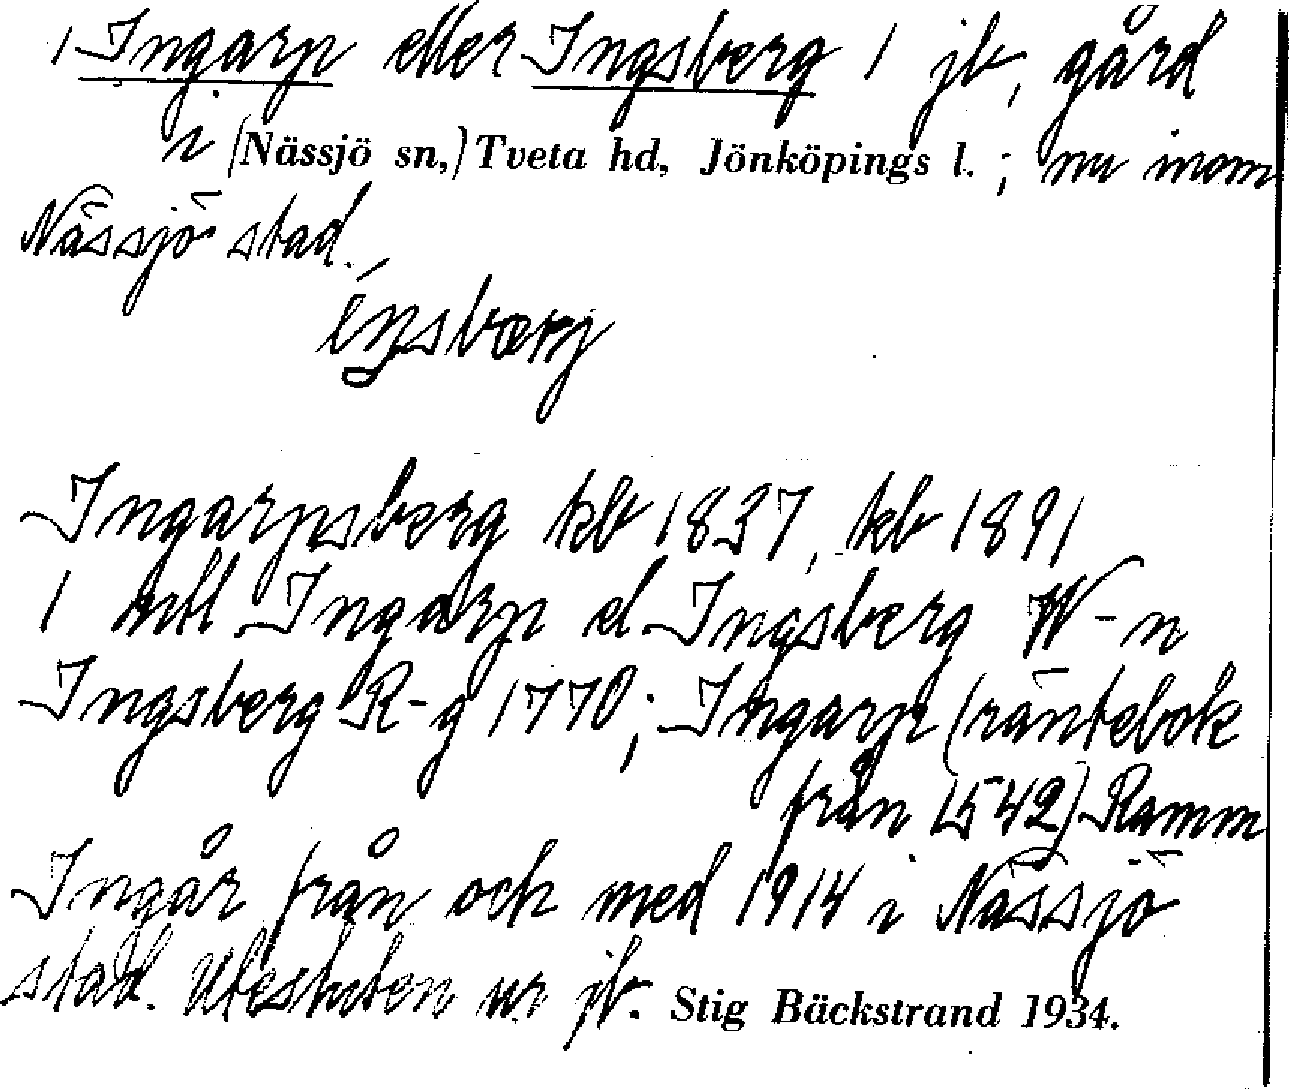 1 Ingarp eller Ingsberg 1 jb, gård
i (Nässjö sn,) Tveta hd, Jönköpings l. ; nu inom
Nässjö stad.
Ingarpsberg kb 1837, kb 1891
1 mtl Ingarp el. Ingsberg W-n
Ingsberg R-g 1770; Ingarp (räntebok
från 1542) Ramm
Ingår från och med 1914 i Nässjö
stad. Utesluten ur jb. Stig Bäckstrand 1934.